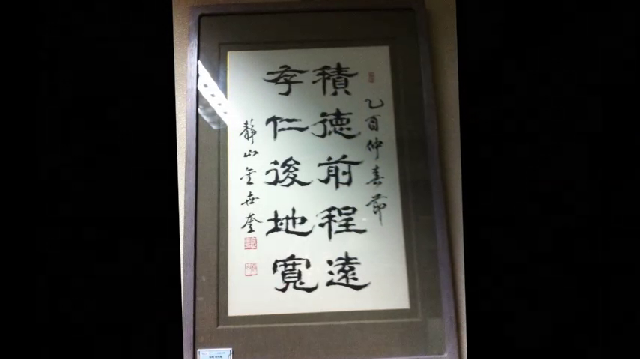 乙酉仲春節
積德前程遠
存仁後地寬
靜山金世奎